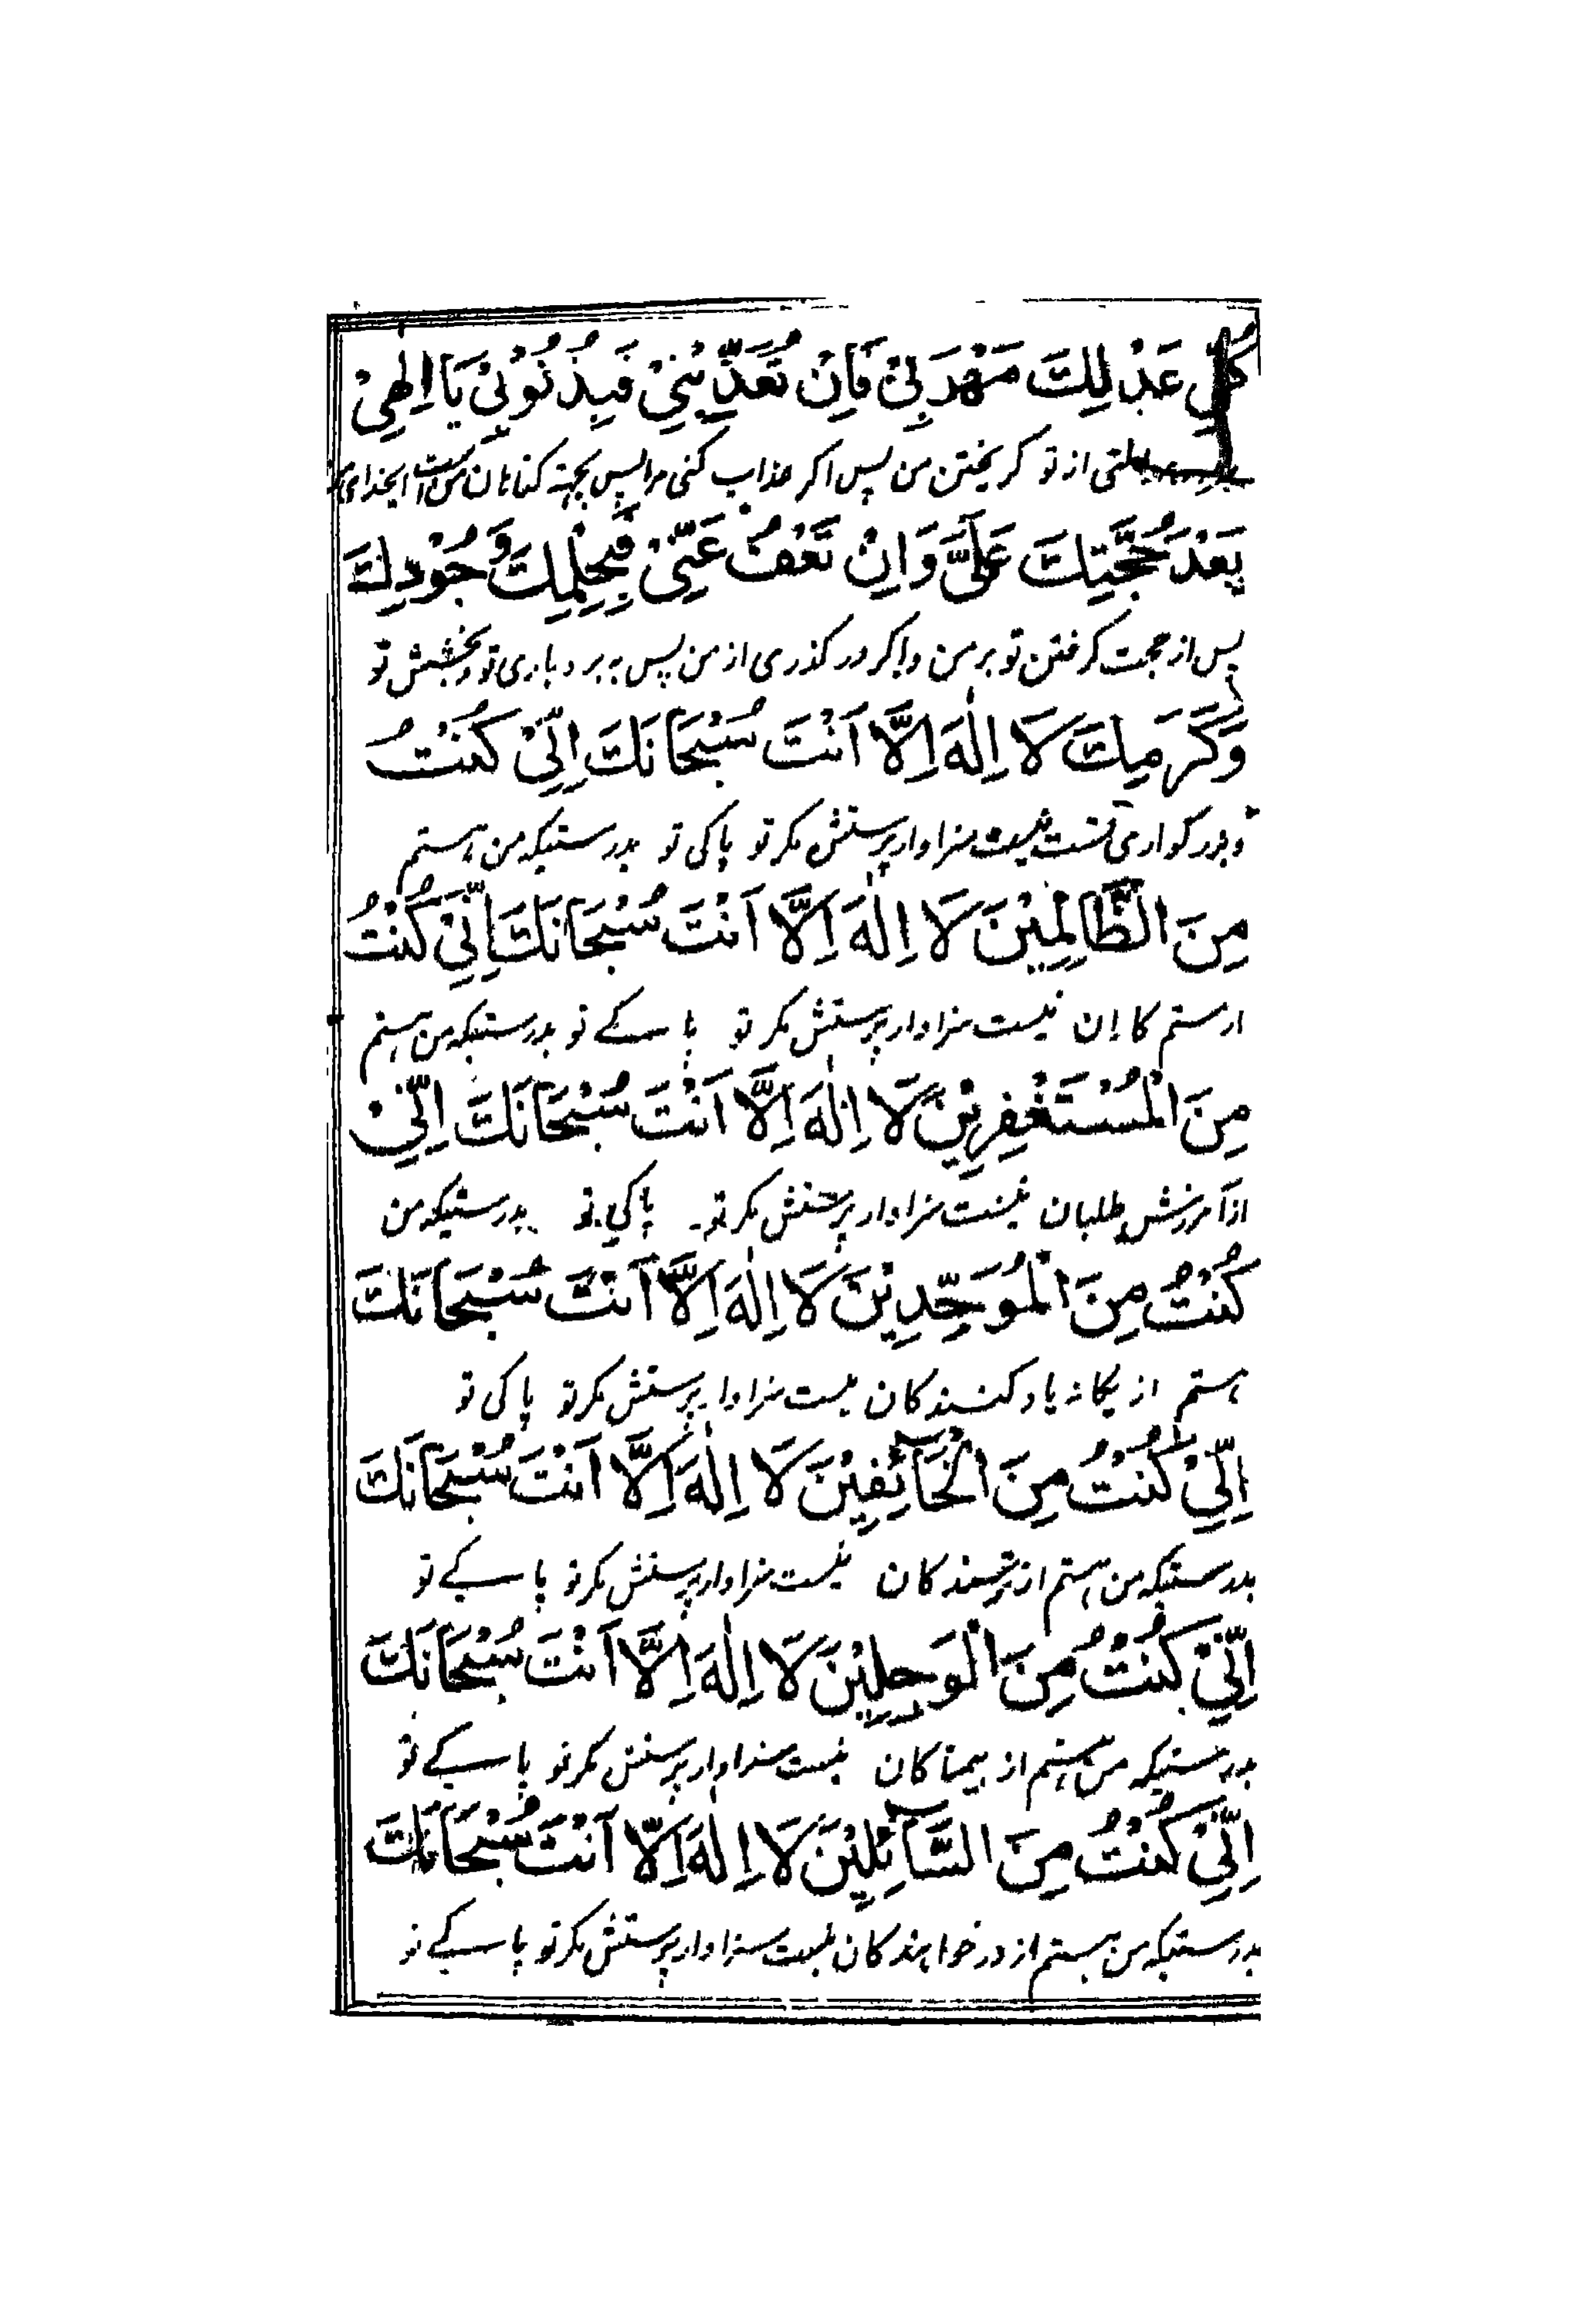 كُلِّ عَدْلِكَ مَهْرَبِيْ فَاِنْ تُعَذِّبْنِيْ فَبِذُنُوْبِيْ يَا اِلٰهِيْ
از تو کریختن من پس اکر عذاب کنی مرا پس بجهته کناهان من است ایخدای
بَعْدَ حُجَّتِكَ عَلَيَّ وَاِنْ تَعْفُ عَنِّيْ فَبِحِلْمِكَ وَ جُوْدِكَ
پس از حجت کرفتن تو بر من و اکر در کذری از من پس به بردباری تو و بخشش تو
وَكَرَمِكَ لَا اِلٰهَ اِلَّا اَنْتَ سُبْحَانَكَ اِنِّيْ كُنْتُ
و بزرکواری تست نیست سزاوار پرستش مکر تو پاکی تو بدرستیکه من هستم
مِنَ الظَّالِمِيْنَ لَا اِلٰهَ اِلَّا اَنْتَ سُبْحَانَكَ اِنِّيْ كُنْتُ
از ستم کاران نیست سزاوار پرستش مکر تو پاکے تو بدرستیکه من هستم
مِنَ الْمُسْتَغْفِرِيْنَ لَا اِلٰهَ اِلَّا اَنْتَ سُبْحَانَكَ اِنِّيْ
از آمرزش طلبان نیست سزاوار پرستش مکر تو پاکی تو بدرستیکه من
كُنْتُ مِنَ الْمُوَحِّدِيْنَ لَا اِلٰهَ اِلَّا اَنْتَ سُبْحَانَكَ
هستم از یکانه یاد کنندکان نیست سزاوار پرستش مکر تو پاکی تو
اِنِّيْ كُنْتُ مِنَ الْخَآئِفِيْنَ لَا اِلٰهَ اِلَّا اَنْتَ سُبْحَانَكَ
بدرستیکه من هستم از ترسندکان نیست سزاوار پرستش مکر تو پاکے تو
اِنِّيْ كُنْتُ مِنَ الْوَجِلِيْنَ لَا اِلٰهَ اِلَّا اَنْتَ سُبْحَانَكَ
بدرستیکه من هستم از بیمناکان نیست سزاوار پرستش مکر تو پاکے تو
اِنِّيْ كُنْتُ مِنَ السَّآئِلِيْنَ لَا اِلٰهَ اِلَّا اَنْتَ سُبْحَانَكَ
بدرستیکه من هستم از درخواهندکان نیست سزاوار پرستش مکر تو پاکے تو